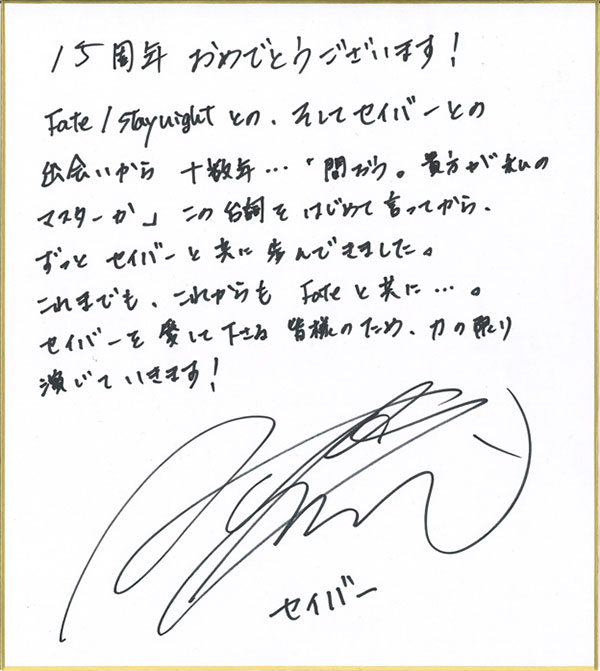 15周年 おめでとうございます!
Fate/stay night との、そしてセイバーとの
出会いから 十数年…「問おう。貴方が私の
マスターか」この台詞をはじめて言ってから、
ずっと セイバーと共に歩んできました。
これまでも、これからも Fateと共に…。
セイバーを愛して下さる 皆様のため、力の限り
演じていきます!
セイバー